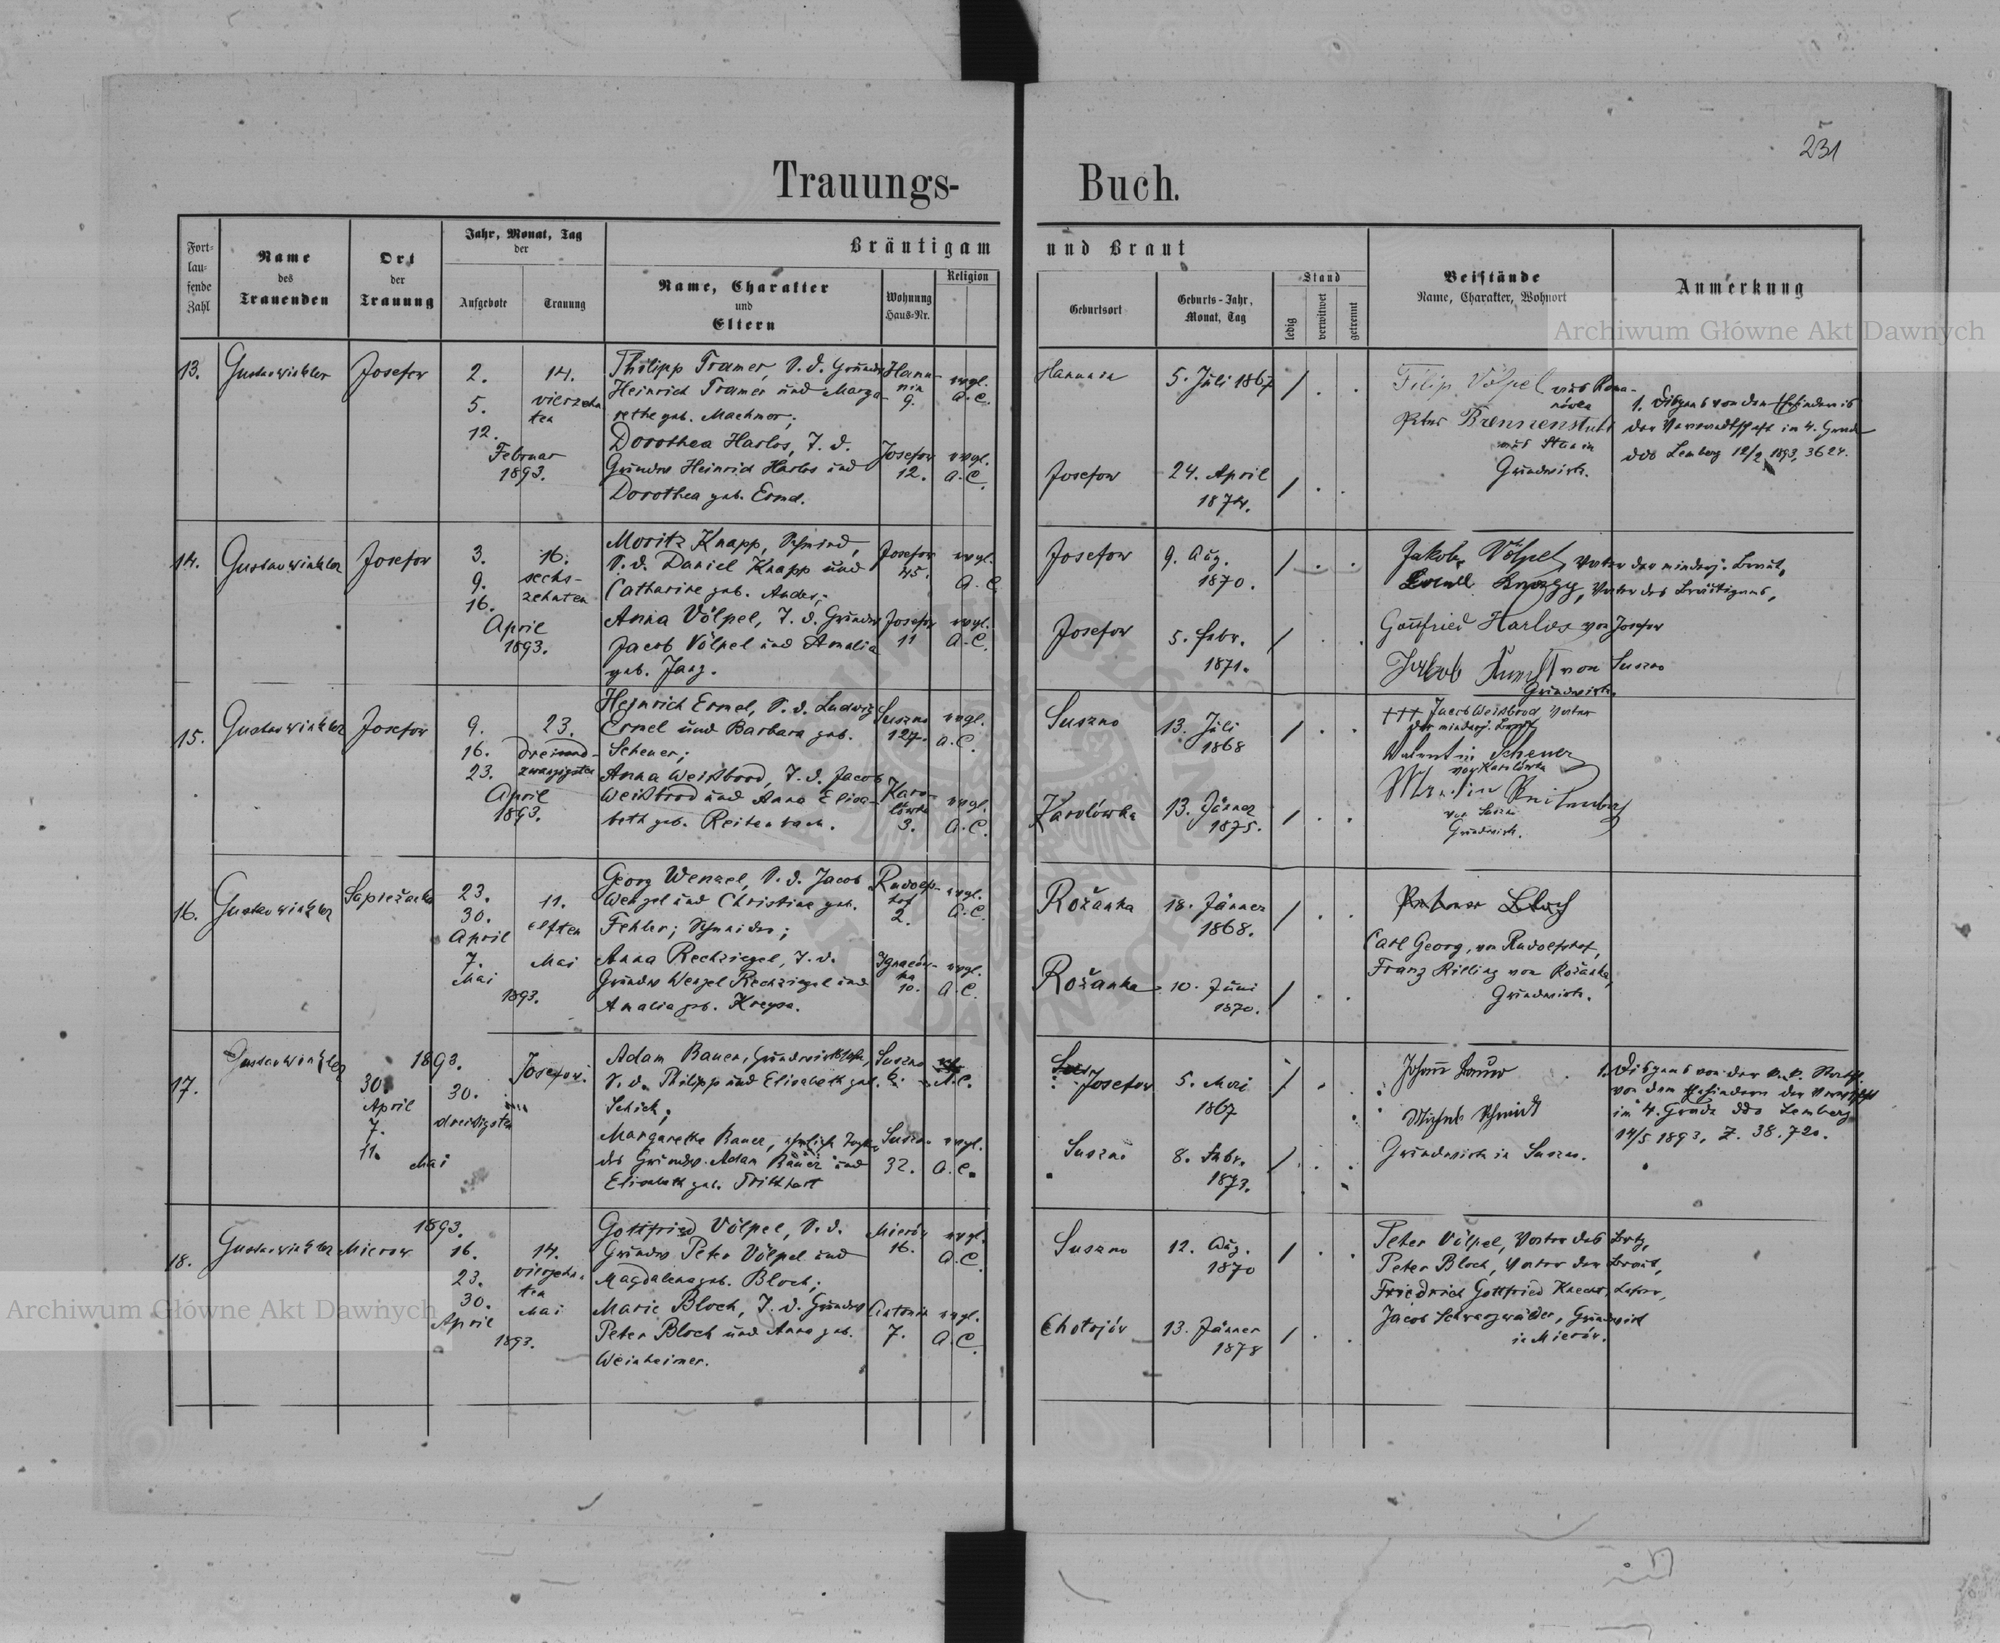 231
Trauungs- Buch.
Fort-
lau-
fende
Zahl
Name
des
Trauenden
Ort
der
Trauung
Jahr, Monat, Tag
der
Aufgebote
Trauung
Bräutigam und Braut
Name, Charakter
und
Eltern
Wohnung
Haus-Nr.
Religion
Geburtsort
Geburts-Jahr,
Monat, Tag
Stand
ledig
verwitwet
getrennt
Beistände
Name, Charakter, Wohnort
Anmerkung
Archiwum Główne Akt Dawnych
13.
Gustav Winkler
Josefow
2.
5.
12.
Februar
1893.
14.
vierzehn
ten
Philipp Tramer, S. d. Grundw
Heinrich Tramer und Marga-
rethe geb. Machmer;
Dorothea Harlos, T. d.
Grundw Heinrich Harlos und
Dorothea geb. Ermel.
Hanu-
nin
9.
evgl.
A. C.
Josefow
12.
evgl.
A. C.
Hanunin
5. Juli 1867
Josefow
24. April
1874.
Filip Völpel aus Roma-
nówka
Peter Brennenstuhl
aus Stanin
Grundwirth.
1. Dispens von dem Ehehindernis
der Verwandtschaft im 4. Grade
ddo Lemberg 12/2 1893, 3624.
14.
Gustav Winkler
Josefow
3.
9.
16.
April
1893.
16.
sechs-
zehnten
Moritz Knapp, Schmied,
S. d. Daniel Knapp und
Catharine geb. Andes;
Anna Völpel, T. d. Grundw
Jacob Völpel und Amalia
geb. Jang.
Josefow
45.
evgl.
A. C.
Josefow
11
evgl.
A. C.
Josefow
9. Aug.
1870.
Josefow
5. Febr.
1871.
Jakob Völpel, Vater der minderj. Braut,
Knapp, Vater des Bräutigams,
Gottfried Harlos von Josefow
Jakob von Suszno
Grundwirth.
15.
Gustav Winkler
Josefow
9.
16.
23.
April
1893.
23.
dreiund-
zwanzigsten
Heinrich Ermel, S. d. Ludwig
Ermel und Barbara geb.
Scheuer;
Anna Weißbrod, T. d. Jacob
Weißbrod und Anna Elisa-
beth geb. Reitenbach.
Suszno
127.
evgl.
A. C.
Karo-
lówka
3.
evgl.
A. C.
Suszno
13. Juli
1868
Karolówka
13. Jänner
1875.
+++ Jacob Weißbrod Vater
der minderj. Braut
Valentin Scheuer
von Karolówka
Martin Reitenbach
von Suszno
Grundwirth.
16.
Gustav Winkler
Sapieżanka
23.
30.
April
7.
Mai
1893.
11.
elften
Mai
Georg Wenzel, S. d. Jacob
Wenzel und Christine geb.
Fehler; Schneider;
Anna Rechziegel, T. d.
Grundw Wenzel Rechziegel und
Amalia geb. Krepsa.
Rudolfs-
hof
2.
evgl.
A. C.
Ignaców-
ka
10.
evgl.
A. C.
Rožanka
18. Jänner
1868.
Rožanka
10. Juni
1870.
Carl Georg, von Rudolfshof,
Franz Rilling von Rožanka,
Grundwirth.
17.
Gustav Winkler
1893.
30.
April
7.
11.
Mai
30.
dreißigsten
Josefow.
Adam Bauer, Grundwirthssohn,
S. d. Philipp und Elisabeth geb.
Schick;
Margarethe Bauer, eheliche Tochter
des Grundw. Adam Bauer und
Elisabeth geb. Dritthart
Suszno
6.
A. C.
Suszno
32.
evgl.
A. C.
Josefow
5. Mai
1867
Suszno
8. Febr.
1873.
Johann Bauer
Michael Schmidt
Grundwirth in Suszno.
1. Dispens von der k. k. Statth.
von dem Ehehindern der Verwdtschft
im 4. Grade ddo Lemberg
14/5 1893, Z. 38.720.
18.
Gustav Winkler
Mierow
1893.
16.
23.
30.
April
1893.
14.
vierzehn-
ten
Mai
Gottfried Völpel, S. d.
Grundw Peter Völpel und
Magdalena geb. Bloch;
Marie Bloch, T. d. Grundw
Peter Bloch und Anna geb.
Weinheimer.
Mierów
16.
evgl.
A. C.
Antonin
7.
evgl.
A. C.
Suszno
12. Aug.
1870
Chotojów
13. Jänner
1878
Peter Völpel, Vater des Brtg,
Peter Bloch, Vater der Braut,
Friedrich Gottfried Knecht, Lehrer,
Jacob Schwarzwälder, Grundwirt
in Mierów.
Archiwum Główne Akt Dawnych